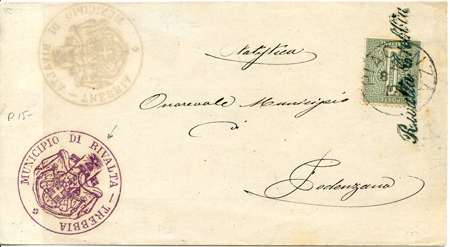 MUNICIPIO DI RIVALTA - TREBBIA
Statistica
Onorevole Municipio
di
Podenzano
P 15-
MUNICIPIO DI RIVALTA - TREBBIA
Rivalta Trebbia